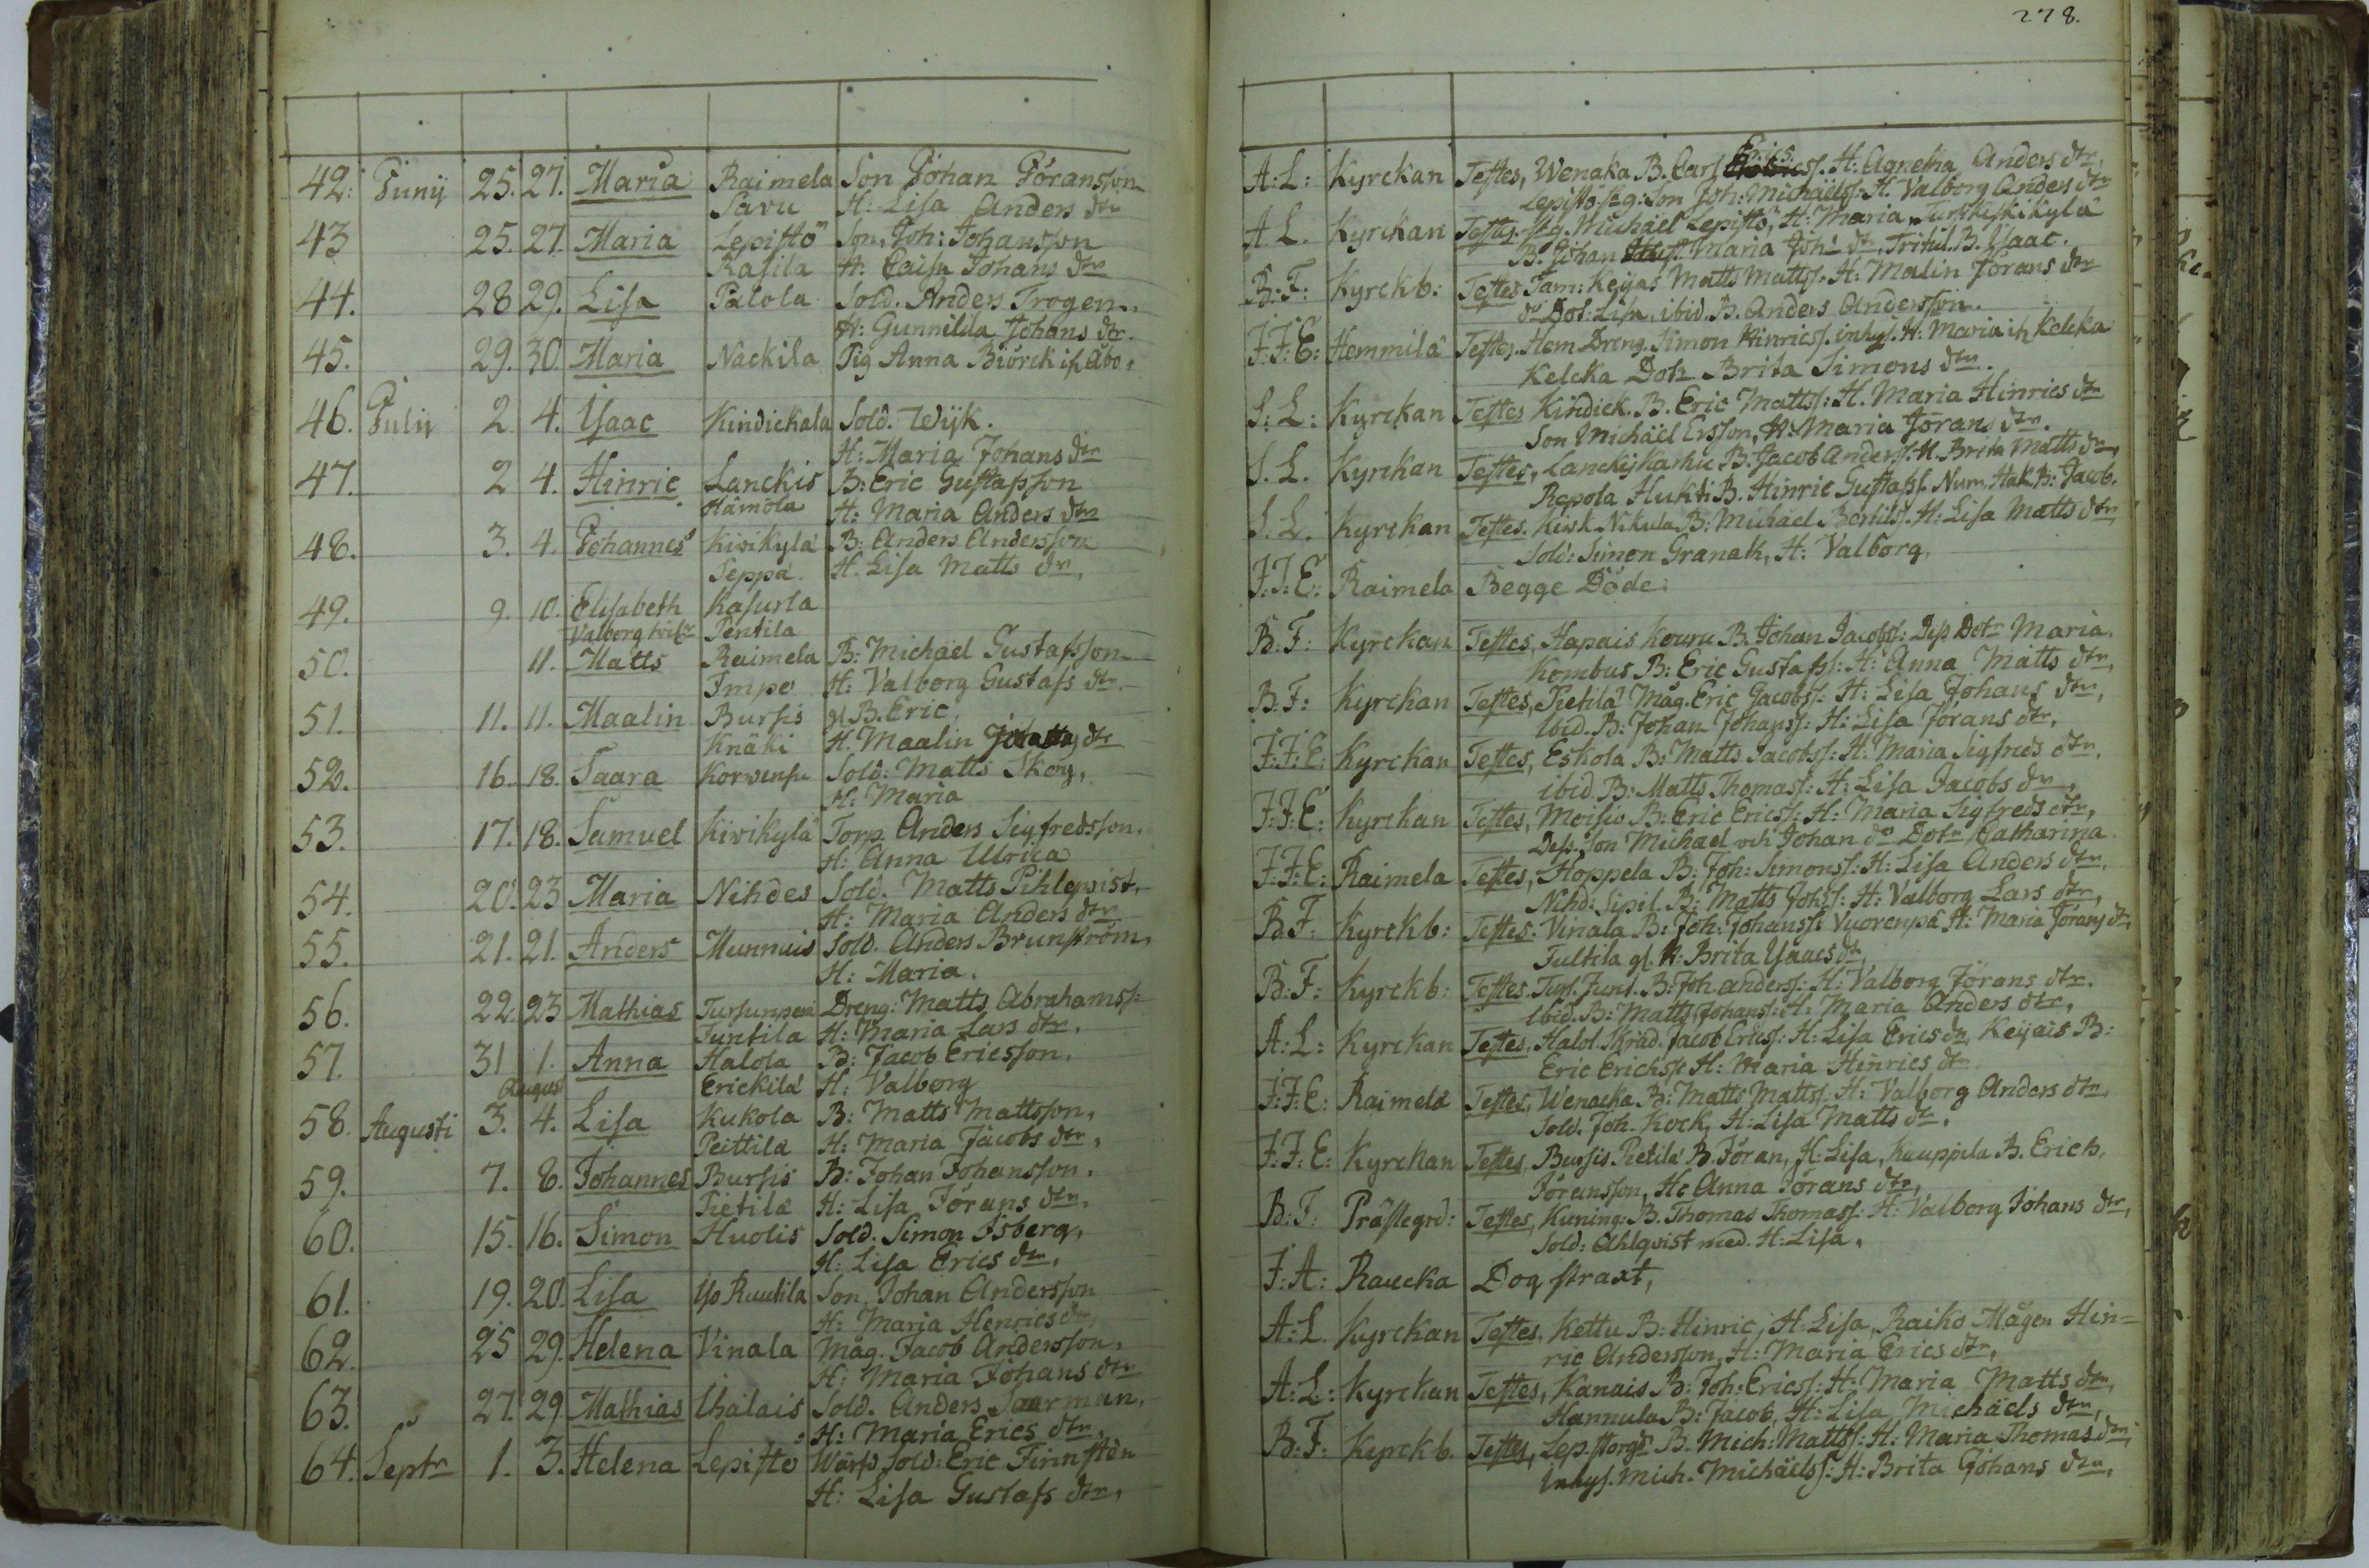 278.
42. Junij 25. 27. Maria Raimela Son Johan Göransson
Savu H: Lisa Anders dtr
43 25. 27. Maria Lepistö Son Joh: Johansson
Rasila H: Caisa Johans dtr
44. 28 29. Lisa Palola Sold. Anders Trogen.
H: Gunnilda Johans dtr.
45. 29. 30. Maria Nackila Pig Anna Biörck if. Åbo.
46. Julij 2. 4. Isaac Kindickala Sold. Wijk.
H: Maria Johans dtr
47. 2 4. Hinric Lanckis B: Eric Gustafsson
Hämola H: Maria Anders dtr
48. 3. 4. Johannes Kivikylä B: Anders Andersson
Seppä. H. Lisa Matts dtr,
49. 9. 10. Elisabeth Kasurla
Valborg Pentila
50. 11. Matts Raimela B: Michäel Gustafsson
Impo H: Valborg Gustafs dtr.
51. 11. 11. Maalin Bursis gl B. Eric,
Knäki H. Maalin dtr
52. 16. 18. Saara Korvensu Sold: Matts Skog,
H: Maria
53. 17. 18. Samuel Kivikylä Torp. Anders Sigfredsson.
H: Anna Ulrica
54. 20. 23 Maria Nihdes Sold. Matts Pihlqvist,
H: Maria Anders dtr
55. 21. 21. Anders Munnuis Sold. Anders Brunström,
H: Maria.
56. 22. 23 Mathias Tursunperä Dreng: Matts Abrahamss:
Juntila H: Maria Lars dtr,
57. 31 1. Anna Halola B: Jacob Ericsson,
August Erickilä H: Valborg
58. Augusti 3. 4. Lisa Kukola B: Matts Mattsson,
Peittilä H: Maria Jacobs dtr,
59. 7. 8. Johannes Bursis B: Johan Johansson.
Pietilä H: Lisa Jörans dtr.
60. 15. 16. Simon Huolis Sold. Simon Isberg,
H: Lisa Erics dtr,
61. 19. 20. Lisa Yo Ruutila Son Johan Andersson
H: Maria Henrics dtr,
62. 25 29. Helena Vinala Måg. Jacob Andersson,
H: Maria Johans dtr
63. 27. 29. Mathias Ihalais Sold. Anders Saarman,
H: Maria Erics dtr,
64. Septr 1. 3. Helena Lepistö Sold: Eric Finnstén
H: Lisa Gustafs dtr,
A: L: Kyrckan Testes, Wenaka B. Carl Erics. H: Agneta Anders dtr,
Lepistö Son Joh: Michäelss: H. Valborg Anders dtr
A. L. Kyrckan Testes. Michäel Lepistö, H: Maria,
B. Johan Maria Joh: dtr, B. Isaac.
B: F: Kyrckb: Testes Keijas Matts Mattss: H: Malin Jörans dtr
Dot: Lisa, ibid. B. Anders Andersson.
J: F: E: Hemmilä Testes. Hem Dreng. Simon Hinricss. inhys. H: Maria Kelcka
Kelcka Dotr Brita Simons dtr.
S: L: Kyrckan Testes Kindick. B. Eric Mattss: H. Maria Hinrics dtr
Son Michäel Ersson, H: Maria Jörans dtr.
S. L. Kyrckan Testes, B. Jacob Anderss. H. Brita Matts dtr,
Repola Hukti B. Hinric Gustafss. Num. B: Jacob.
S: L. Kyrckan Testes. Kivik. Nikula B: Michäel Bertilss. H: Lisa Matts dtr
Sold: Simon Granak, H: Valborg,
J: F: E: Raimela Begge Döde:
B: F: Kyrckan Testes, Hapais Kouru B. Johan Jacobss: Dess Dotr Maria.
Kombus B: Eric Gustafss: H: Anna Matts dtr,
B: F: Kyrckan Testes, Pietilä Måg. Eric Jacobss: H: Lisa Johans dtr,
Ibid. B: Johan Johanss: H: Lisa Jörans dtr,
J: F: E: Kyrckan Testes, Eskola B: Matts Jacobss: H: Maria Sigfreds dtr,
ibid. B: Matts Thomass: H: Lisa Jacobs dtr,
J: F: E: Kyrckan Testes, Moisio B: Eric Ericss: H: Maria Sigfreds dtr,
Dess Son Michael och Johan do Dotr Catharina.
J: F: E: Raimela Testes, Hoppela B: Joh: Simonss: H: Lisa Anders dtr,
Nihd: Sipil. B: Matts Johss: H: Valborg Lars dtr,
B. F. Kyrckb: Testes: Vinala B: Joh: Johanss: Vuorenpä H: Maria Jörans dtr,
Tultila gl. H: Brita Isaacs dtr,
B: F: Kyrckb: Testes. Turs. Junt. B: Joh. anderss: H: Valborg Jörans dtr.
Ibid. B: Matts Johanss: H: Maria Anders dtr,
A: L: Kyrckan Testes, Halol. Skräd. Jacob Ericss: H: Lisa Erics dtr, Keijais B:
Eric Erichss: H: Maria Hinrics dtr
J: F: E: Raimela Testes, Wenacka B: Matts Mattss. H: Valborg Anders dtr,
Sold. Joh. Kock, H: Lisa Matts dtr.
J: F: E: Kyrckan Testes, Bursis Pietilä B. Jöran, H: Lisa, Kauppila B. Erich
Jöransson, H: Anna Jörans dtr,
B: F: Prästegrd: Testes, Kuning: B. Thomas Thomass: H: Valborg Johans dtr,
Sold: Ahlqvist med H: Lisa.
J: A: Raucka Dog straxt,
A: L. Kyrckan Testes, Kettu B: Hinric, H: Lisa, Raiko Mågen Hin=
ric Andersson, H: Maria Erics dtr,
A: L: Kyrckan Testes, Kanais B: Joh: Ericss: H: Maria Matts dtr,
Hannula B: Jacob, H: Lisa Michäels dtr,
B: F: Kyrckb. Testes, B. Mich: Mattss: H: Maria Thomas dtr,
Inhys. Mich. Michäelss: H: Brita Johans dtr,